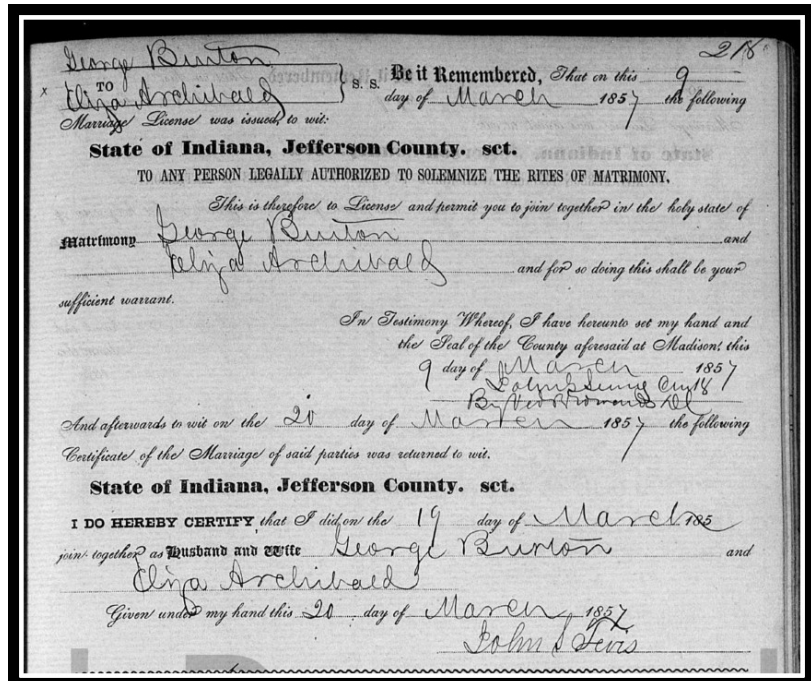 George Burton
218
TO
Eliza Archibald
S. S. Be it Remembered, That on this 9
day of March 1857 the following
Marriage License was issued, to wit:
State of Indiana, Jefferson County. sct.
TO ANY PERSON LEGALLY AUTHORIZED TO SOLEMNIZE THE RITES OF MATRIMONY,
This is therefore to License and permit you to join together in the holy state of
Matrimony George Burton and
Eliza Archibald and for so doing this shall be your
sufficient warrant.
In Testimony Whereof, I have hereunto set my hand and
the Seal of the County aforesaid at Madison, this
9 day of March 1857
John
By
And afterwards to wit on the 20 day of March 1857 the following
Certificate of the Marriage of said parties was returned to wit.
State of Indiana, Jefferson County. sct.
I DO HEREBY CERTIFY, that I did, on the 19 day of March 185
join together as Husband and Wife George Burton and
Eliza Archibald
Given under my hand this 20 day of March 1857
John S Tevis